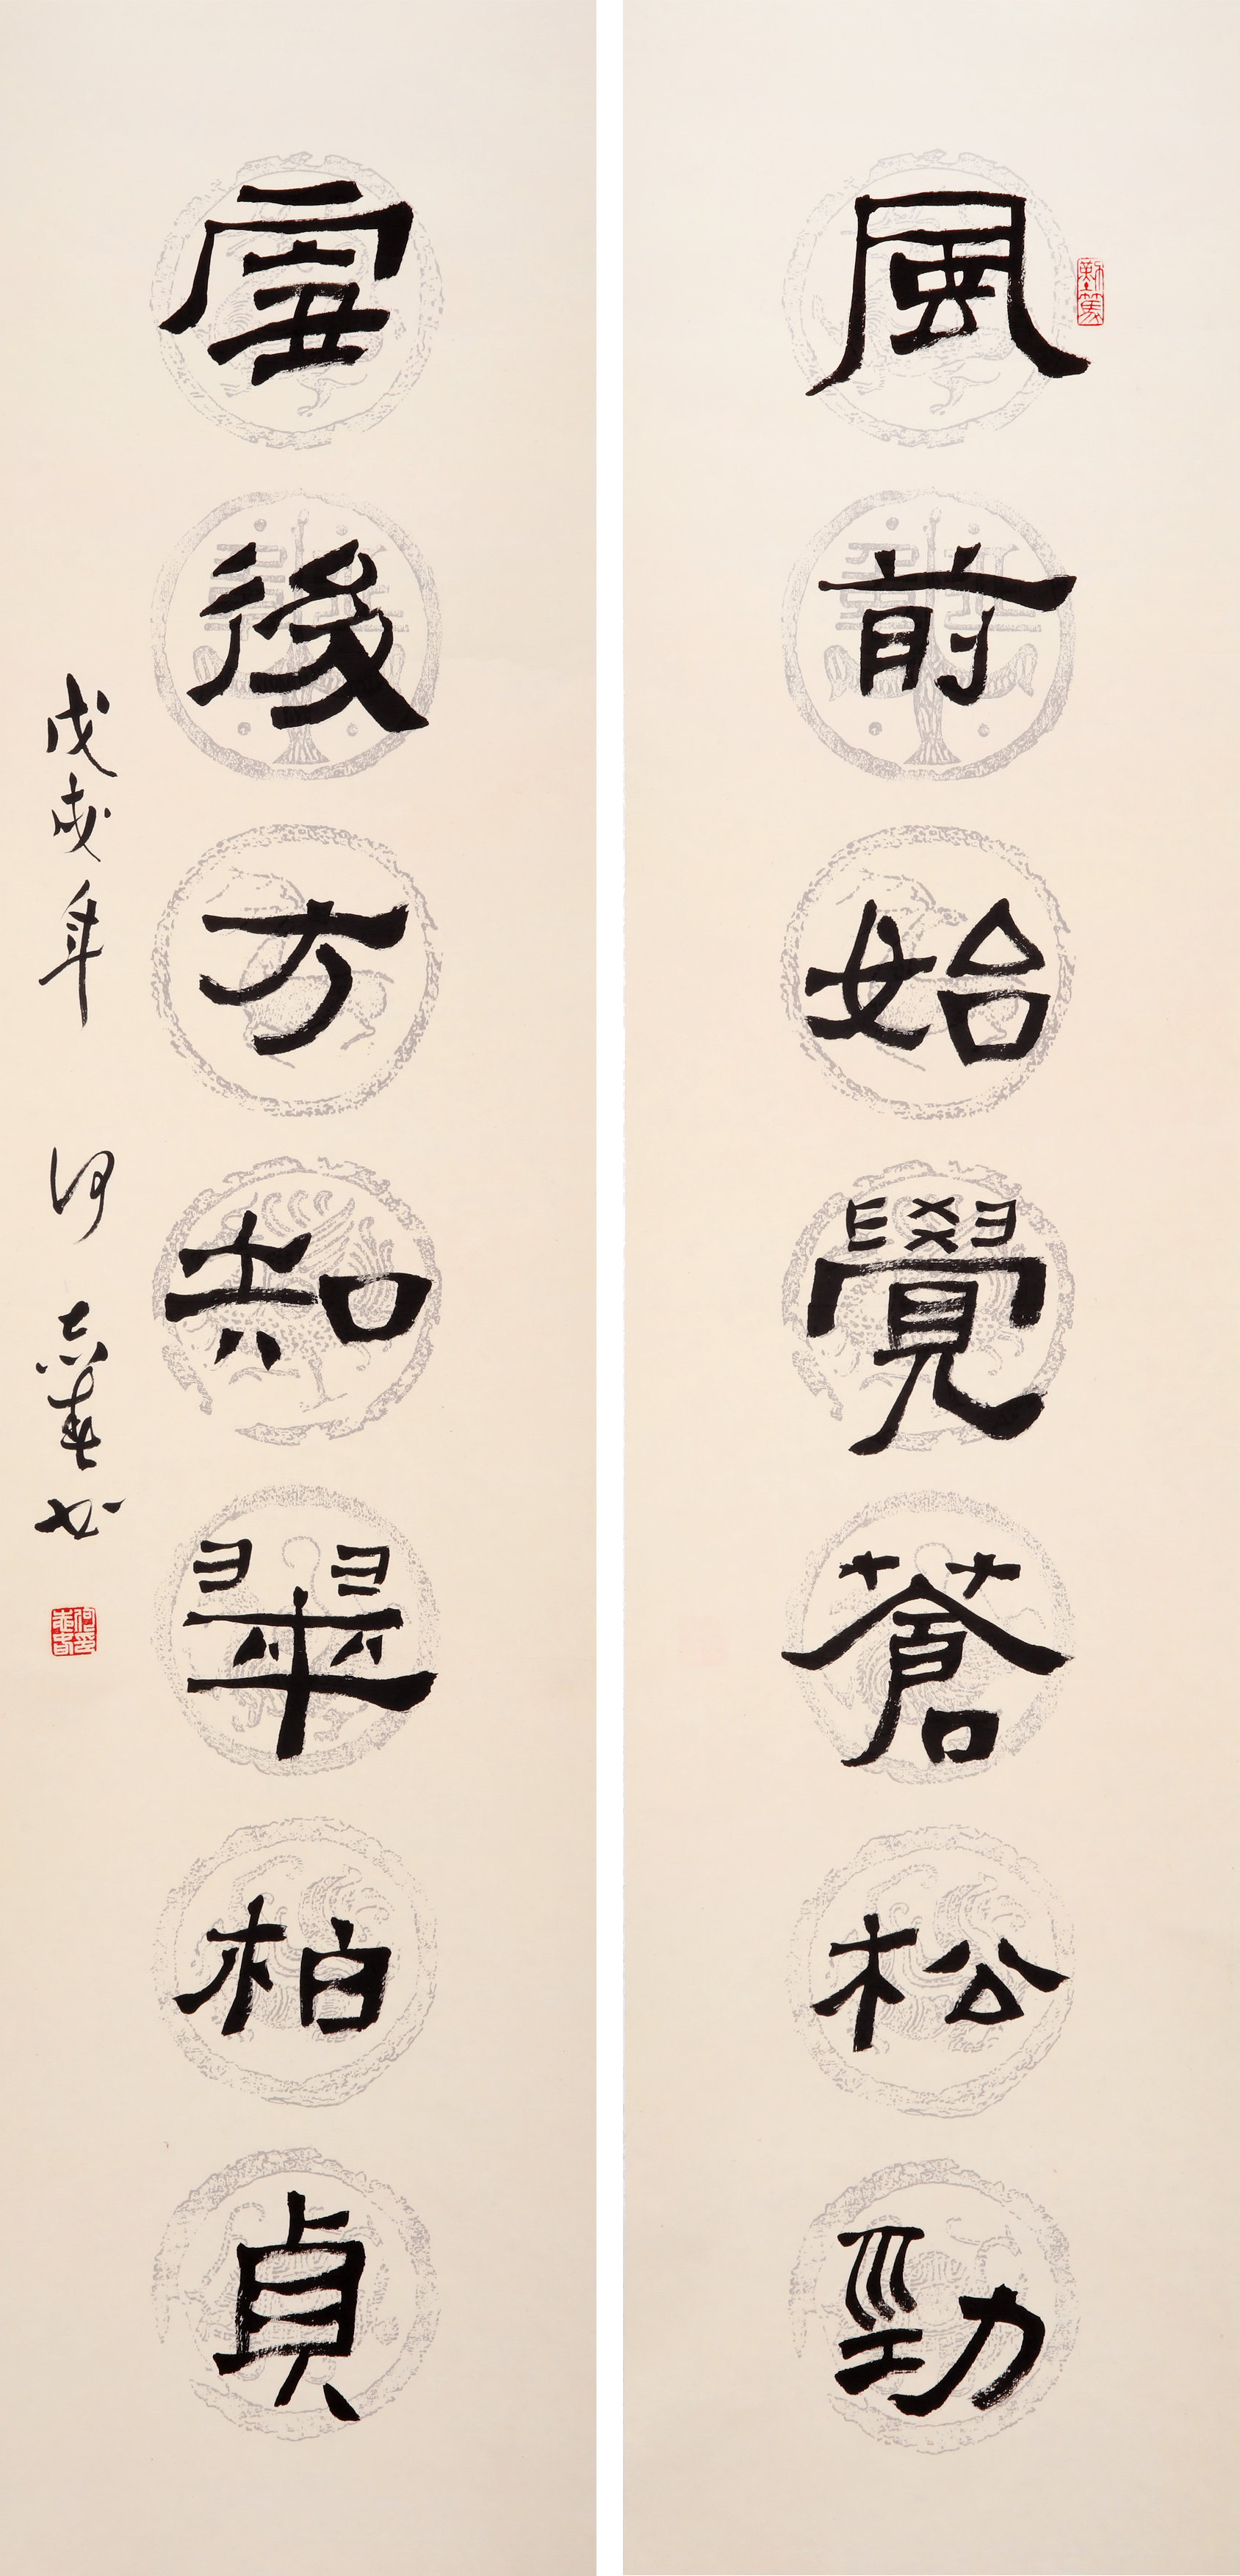 風前始覺蒼松勁
雪後方知翠柏貞
戊戌年 何志春书